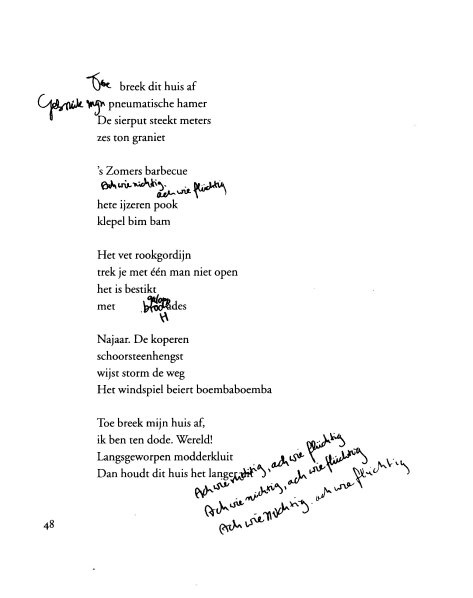 Toe breek dit huis af
Gebruik mijn pneumatische hamer
De sierput steekt meters
zes ton graniet
's Zomers barbecue
Ach wie nichtig,
ach wie flüchtig
hete ijzeren pook
klepel bim bam
Het vet rookgordijn
trek je met één man niet open
het is bestikt
met
Najaar. De koperen
schoorsteenhengst
wijst storm de weg
Het windspiel beiert boembaboemba
Toe breek mijn huis af,
ik ben ten dode. Wereld!
Langsgeworpen modderkluit
Dan houdt dit huis het langer
Ach wie nichtig, ach wie flüchtig
Ach wie nichtig, ach wie flüchtig
Ach wie nichtig. ach wie flüchtig
48